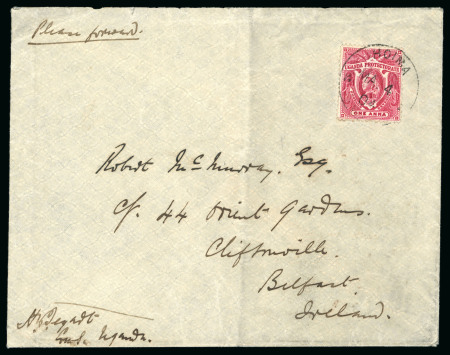 Please forward.
UGANDA PROTECTORATE
ONE ANNA
Robert McMurray, Esq.
c/o 44 Orient Gardens.
Cliftonville.
Belfast.
Ireland.
Uganda.